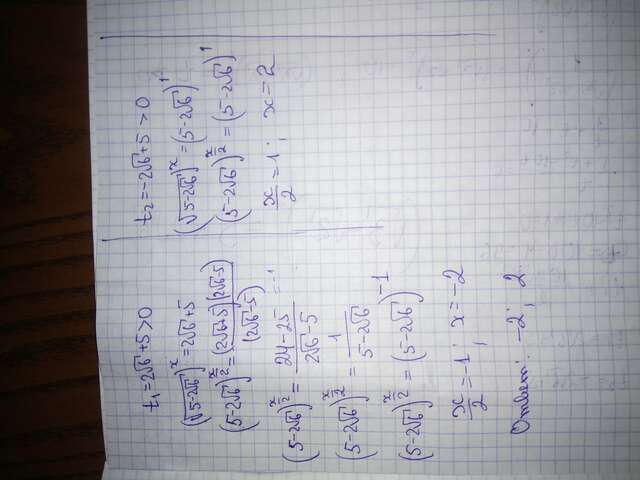 t₁=2√6+5>0
(√(5-2√6))^x=2√6+5
(5-2√6)^(x/2)=((2√6+5)(2√6-5))/(2√6-5)
(5-2√6)^(x/2)=(24-25)/(2√6-5) =-1
(5-2√6)^(x/2)=1/(5-2√6)
(5-2√6)^(x/2)=(5-2√6)^(-1)
x/2=-1; x=-2
Ответ: -2; 2.
t₂=-2√6+5>0
(√(5-2√6))^x=(5-2√6)^1
(5-2√6)^(x/2)=(5-2√6)^1
x/2=1; x=2